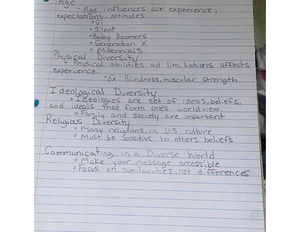 Age
- Age influences our experience,
expectations, attitudes.
° GI
° Silent
° Baby Boomers
° Generation X
° Millennials
Physical Diversity
° Physical abilities ad limitations affects
experience.
*Ex: Blindness, muscular strength
Ideological Diversity
° Ideologies are set of ideas, beliefs,
and ideals that form ones worldview.
° Family and society are important
Religious Diversity
° Many religions in U.S culture
° Must be sensitive to others beliefs
Communicating in a Diverse World
° Make your message accessible
° Focus on similarities, not differences